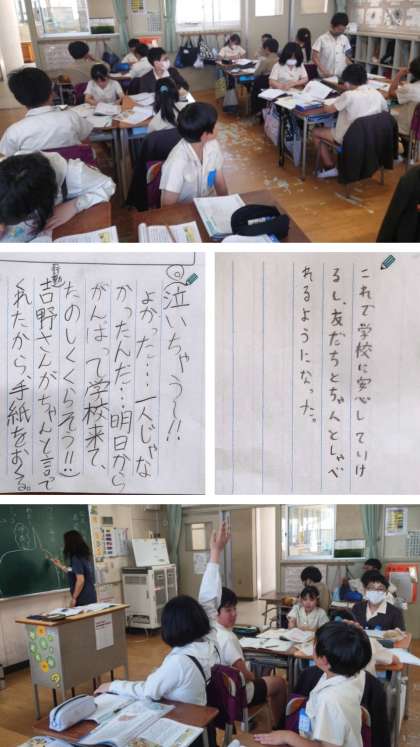 泣いちゃう〜!!
よかった…一人じゃな
かったんだ…明日から
がんばって学校来て、
たのしくくらそう!!
吉野さんがちゃんと言って
くれたから、手紙をおくる。
これで学校に安心していけ
るし、友だちとちゃんとしゃべ
れるようになった。